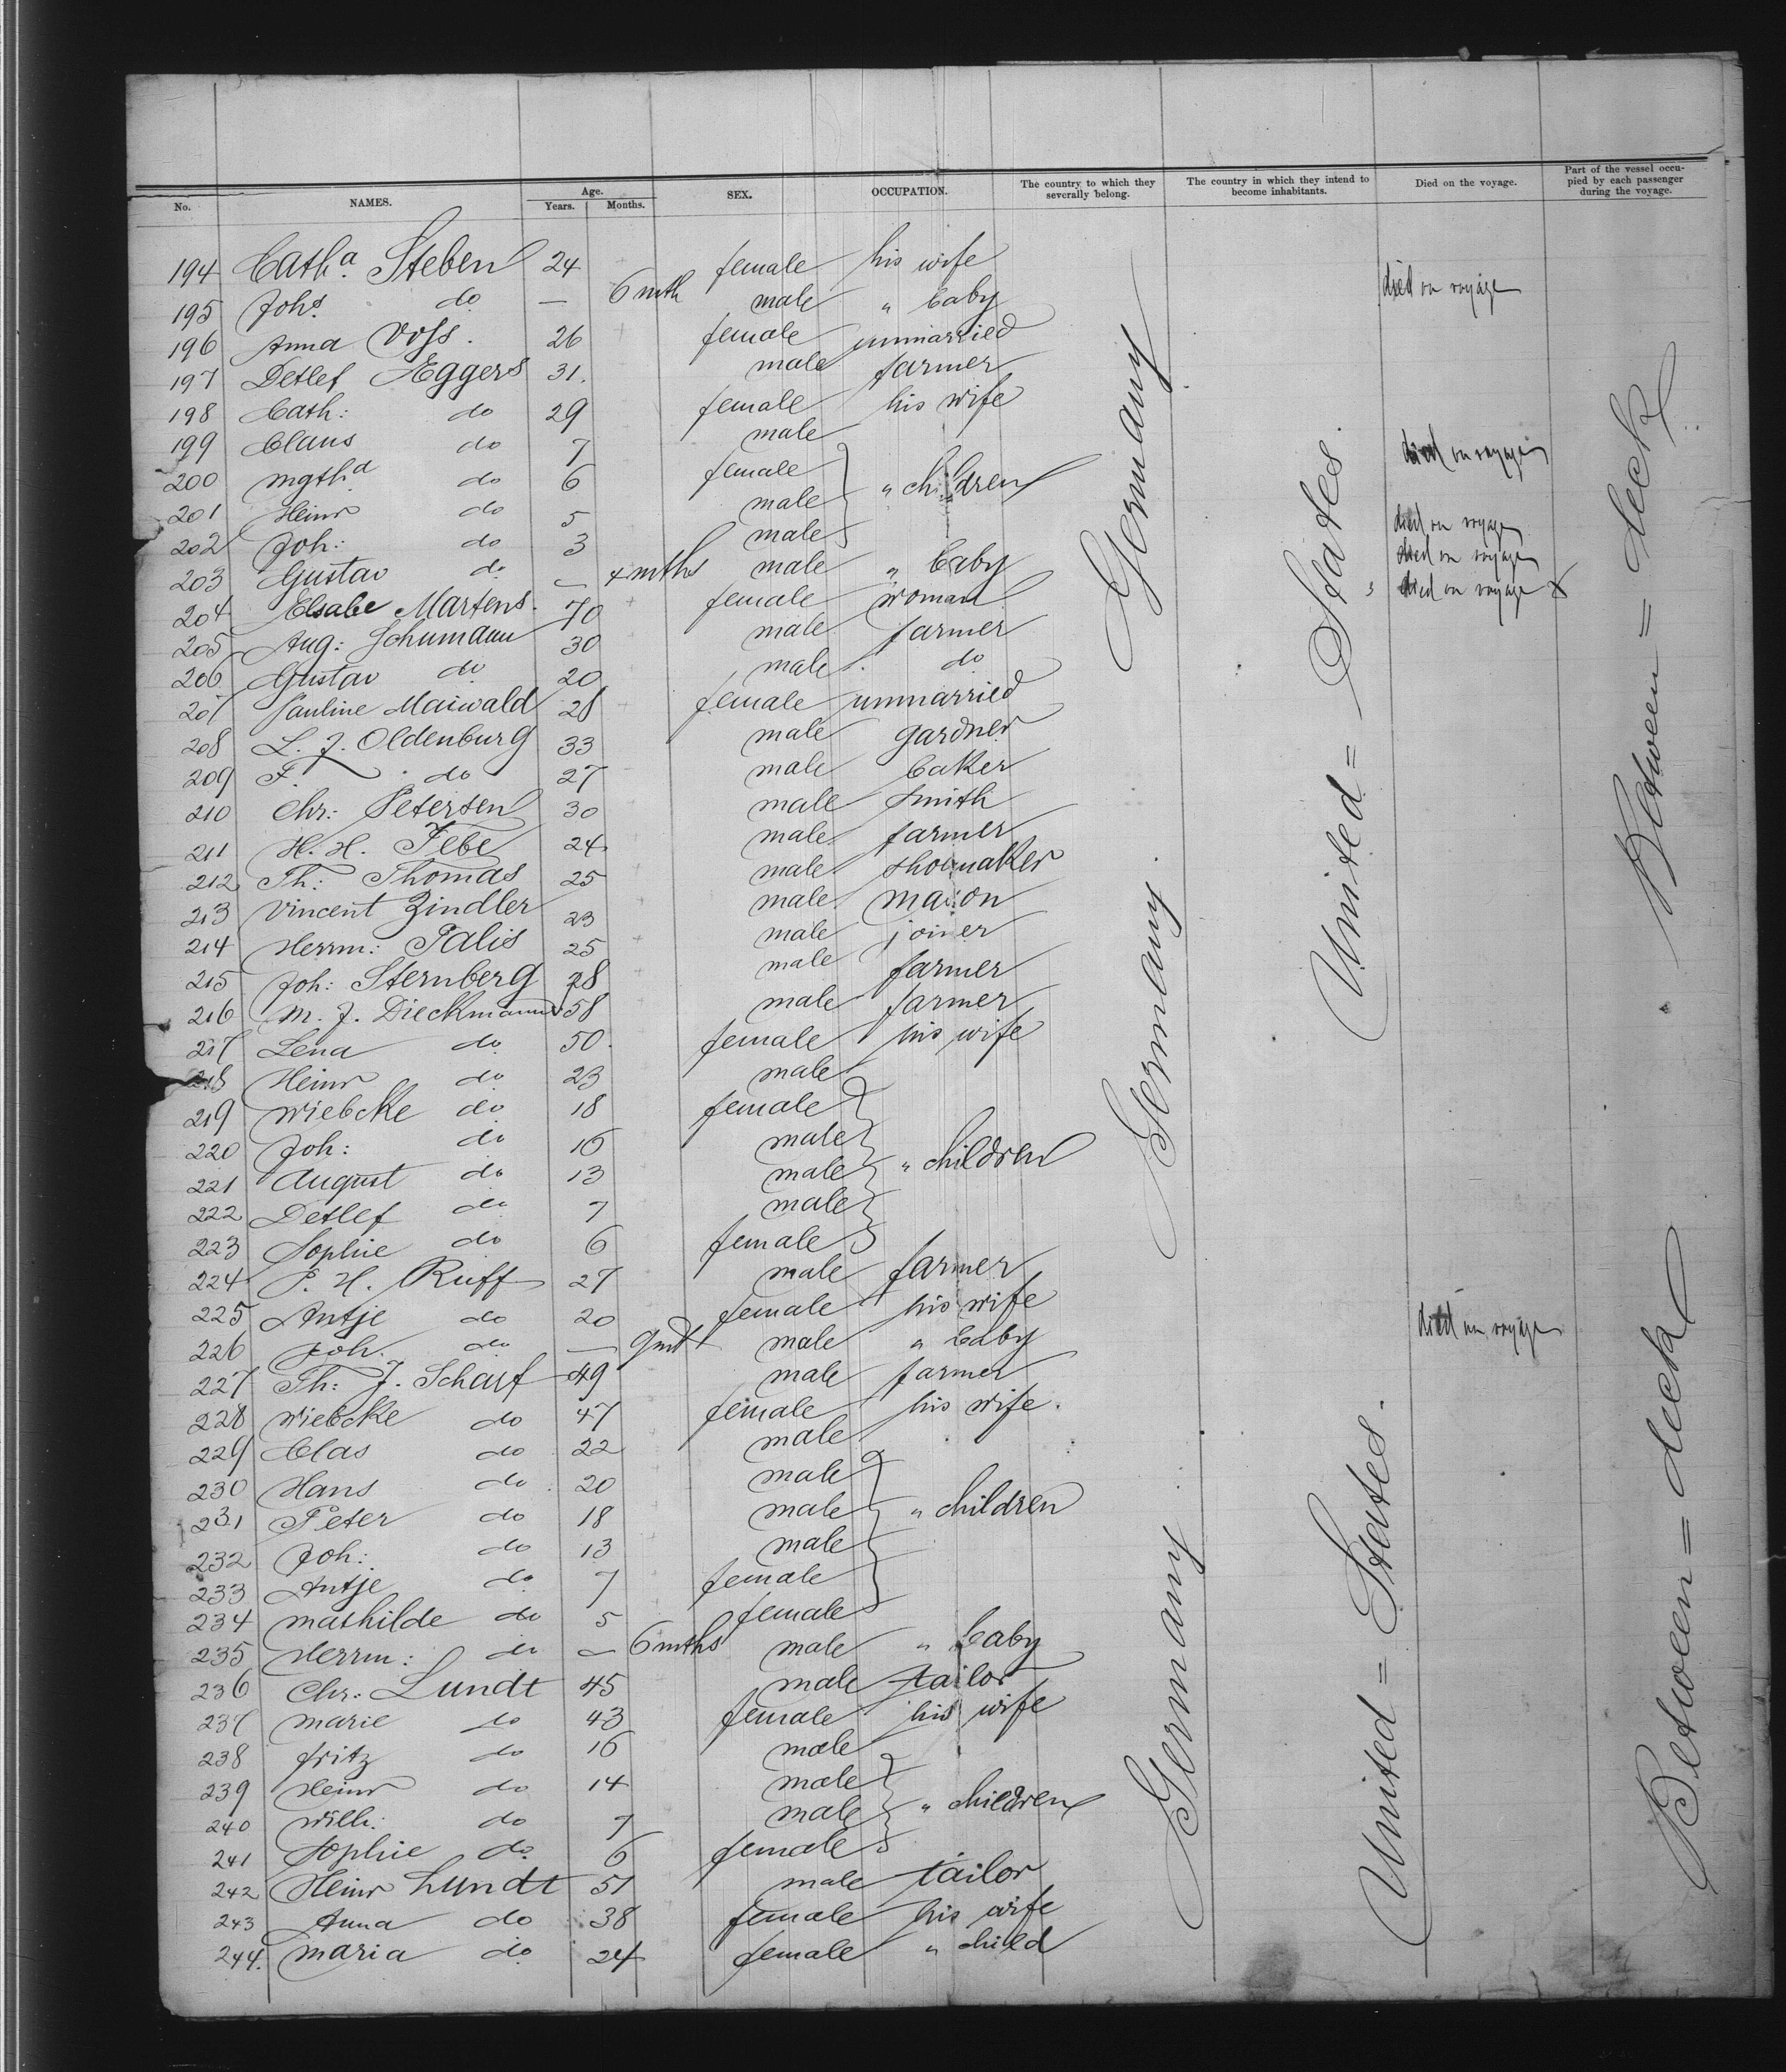 No. NAMES. Age. Years. Months. SEX. OCCUPATION. The country to which they severally belong. The country in which they intend to become inhabitants. Died on the voyage. Part of the vessel occupied by each passenger during the voyage.
194 Cath.a Steben 24 female his wife
195 Johs. do — 6 mth male " baby died on voyage
196 Anna Voss. 26 female unmarried
197 Detlef Eggers 31. male farmer
198 Cath: do 29 female his wife
199 Claus do 7 male
200 Mgtha do 6 female " children died on voyage
201 Heinr do 5 male
202 Joh: do 3 male died on voyage
203 Gustav do — 4 mths male " baby died on voyage
204 Elsabe Martens. 70 female woman died on voyage X
205 Aug: Schumann 30 male farmer
206 Gustav do 20 male do
207 Pauline Maiwald 28 female unmarried
208 L. J. Oldenburg 33 male gardner
209 F. do 27 male baker
210 Chr: Petersen 30 male smith
211 H. H. Tebe 24 male farmer
212 Th: Thomas 25 male shoemaker
213 Vincent Zindler 23 male mason
214 Herrm: Palis 25 male joiner
215 Joh: Sternberg 28 male farmer
216 M. J. Dieckmann 58 male farmer
217 Lena do 50. female his wife
218 Heinr do 23 male
219 Wiebcke do 18 female
220 Joh: do 16 male
221 August do 13 male " children
222 Detlef do 7 male
223 Sophie do 6 female
224 P. H. Ruff 27 male farmer
225 Antje do 20 female his wife
226 Joh. do — 9 mt male " baby died on voyage
227 Th: J. Scharf 49 male farmer
228 Wiebcke do 47 female his wife.
229 Clas do 22 male
230 Hans do 20 male
231 Peter do 18 male " children
232 Joh: do 13 male
233 Antje do 7 female
234 Mathilde do 5 female
235 Herrm: do — 6 mths male " baby
236 Chr: Lundt 45 male tailor
237 Marie do 43 female his wife
238 Fritz do 16 male
239 Heinr do 14 male
240 Wilh: do 7 male " children
241 Sophie do 6 female
242 Heinr Lundt 51 male tailor
243 Anna do 38 female his wife
244. Maria do 24 female " child
Germany
Germany
Germany
United = States.
United = States.
Between = deck
Between = deck